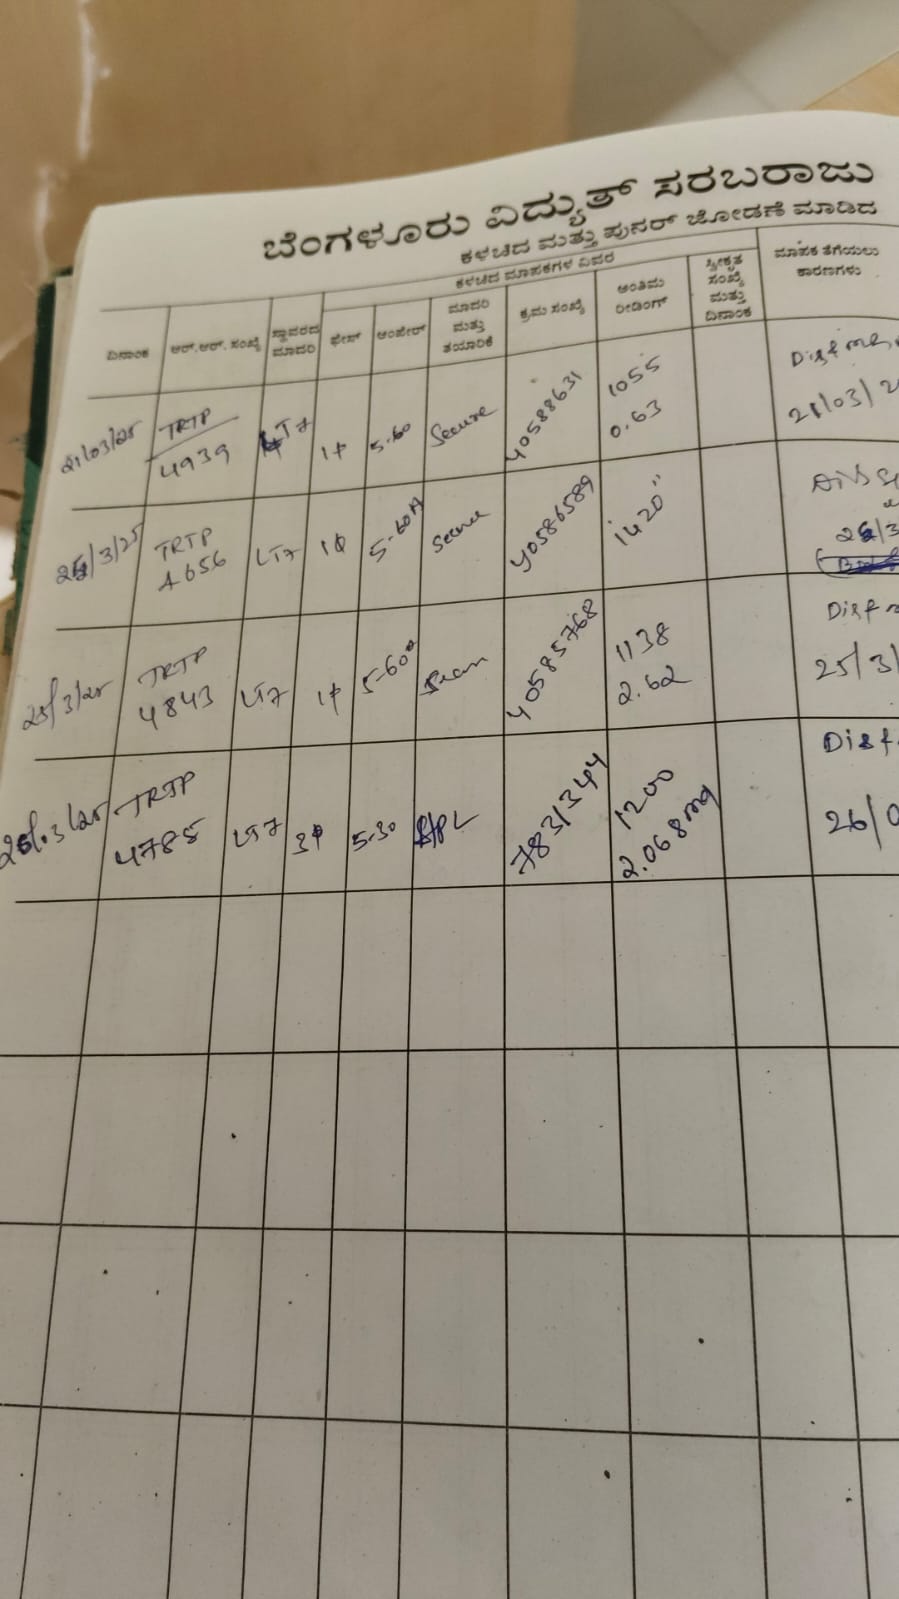 ಬೆಂಗಳೂರು ವಿದ್ಯುತ್ ಸರಬರಾಜು
ಕಳಚಿದ ಮತ್ತು ಪುನರ್ ಜೋಡಣೆ ಮಾಡಿದ
ಕಳಚಿದ ಮಾಪಕಗಳ ವಿವರ
ದಿನಾಂಕ ಆರ್.ಆರ್. ಸಂಖ್ಯೆ ಸ್ಥಾವರದ ಮಾದರಿ ಫೇಸ್ ಆಂಪೇರ್ ಮಾದರಿ ಮತ್ತು ತಯಾರಿಕೆ ಕ್ರಮ ಸಂಖ್ಯೆ ಅಂತಿಮ ರೀಡಿಂಗ್ ಸ್ವೀಕೃತ ಸಂಖ್ಯೆ ಮತ್ತು ದಿನಾಂಕ ಮಾಪಕ ತೆಗೆಯಲು ಕಾರಣಗಳು
21/03/25 TRTP 4939 LT7 1φ 5-60 Secure Y0588631 1055 0.63 21/03/2
/3/25 TRTP 4656 LT7 1φ 5-60A Secure Y0586589 1420
25/3/25 TRTP 4843 LT7 1φ 5-60A Y0585768 1138 2.62 25/3/
26/03/25 TRTP 4785 LT7 3φ 5-30 7831344 1200 2.068 26/0